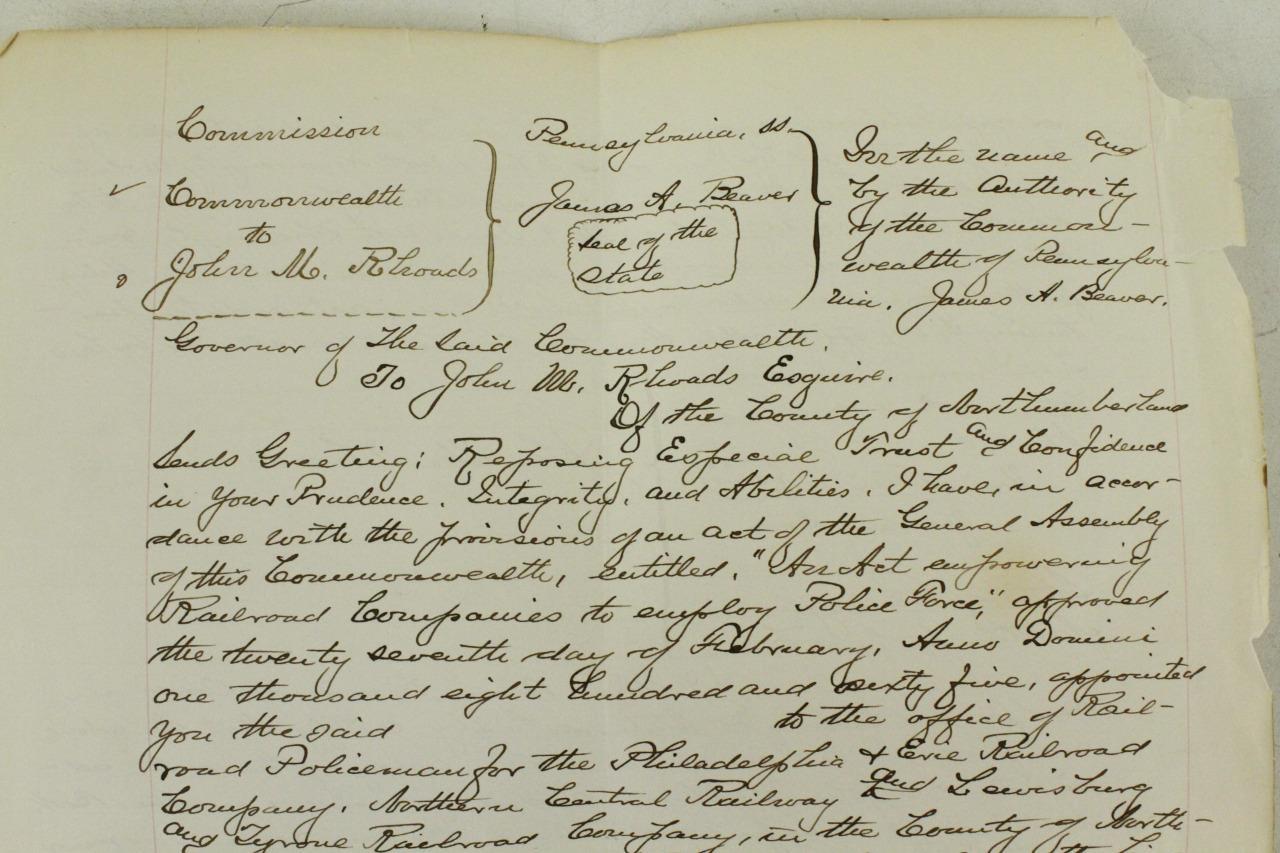 Commission
Commonwealth
to
John M. Rhoads
Pennsylvania, ss.
James A. Beaver
Seal of the
State
In the name and
by the Authority
of the Common-
wealth of Pennsylva-
nia. James A. Beaver.
Governor of The Said Commonwealth.
To John M. Rhoads Esquire.
Of the County of Northumberland
Sends Greeting; Reposing Especial Trust and Confidence
in Your Prudence. Integrity, and Abilities. I have, in accor-
dance with the provisions of an act of the General Assembly
of this Commonwealth, entitled, "An Act empowering
Railroad Companies to employ Police Force," approved
the twenty seventh day of February, Anno Domini
one thousand eight hundred and sixty five, appointed
you the said to the office of Rail-
road Policeman for the Philadelphia & Erie Railroad
Company. Northern Central Railway and Lewisburg
and Tyrone Railroad Company, in the County of North-